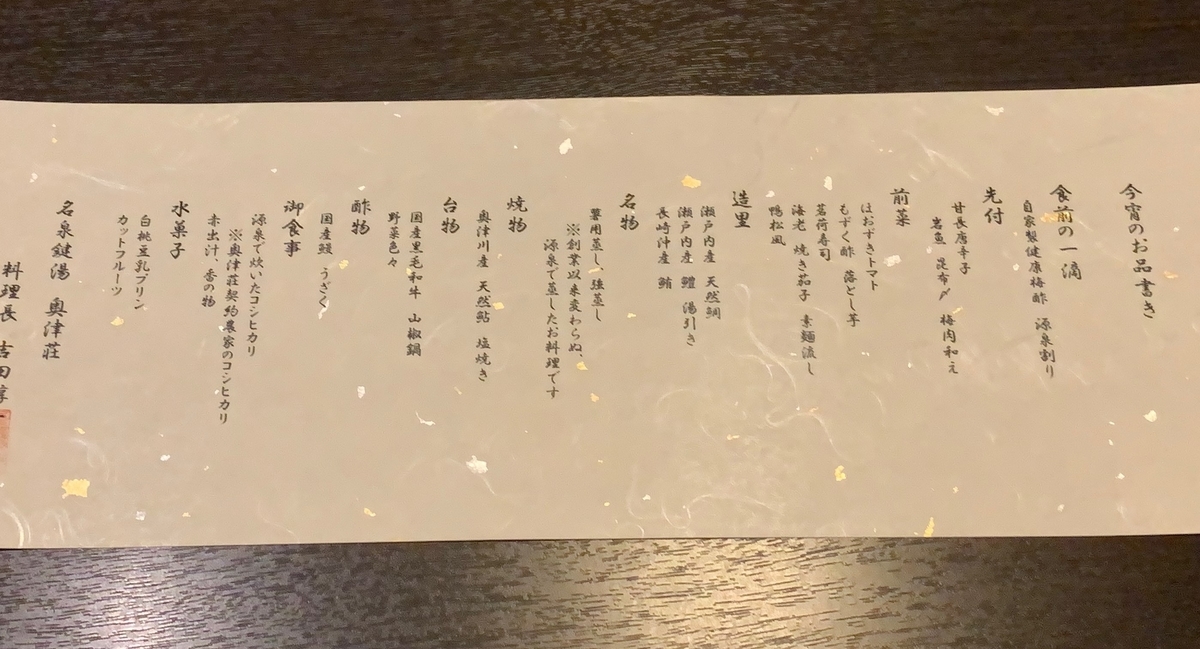 今宵のお品書き
食前の一滴
自家製健康梅酢　源泉割り
先付
甘長唐辛子
岩魚　昆布〆　梅肉和え
前菜
ほおずきトマト
もずく酢　落とし芋
茗荷寿司
海老　焼き茄子　素麺流し
鴨松風
造里
瀬戸内産　天然鯛
瀬戸内産　鱧　湯引き
長崎沖産　鮪
名物
饗用蒸し、強蒸し
※創業以来変わらぬ、
源泉で蒸したお料理です
焼物
奥津川産　天然鮎　塩焼き
台物
国産黒毛和牛　山椒鍋
野菜色々
酢物
国産鰻　うざく
御食事
源泉で炊いたコシヒカリ
※奥津荘契約農家のコシヒカリ
赤出汁、香の物
水菓子
白桃豆乳プリン
カットフルーツ
名泉鍵湯　奥津荘
料理長　吉田